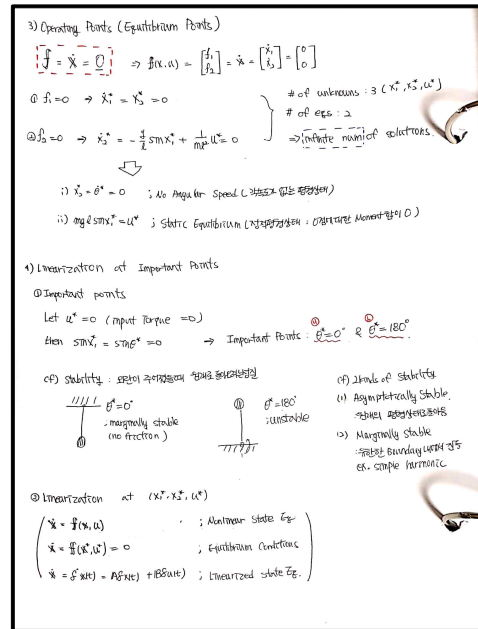 3) Operating Points (Equilibrium Points)
f = ẋ = 0 ⇒ f(x,u) = [f₁ f₂] = ẋ = [ẋ₁ ẋ₂] = [0 0]
① f₁=0 → ẋ₁* = x₂* = 0
# of unknowns : 3 (x₁*, x₂*, u*)
# of eqs : 2
⇒ infinite num of solutions.
② f₂=0 → ẋ₂* = - g/l sinx₁* + 1/ml² u* = 0
i) x₂* = θ̇* = 0 ; No Angular Speed (각속도가 없는 평형상태)
ii) mglsinx₁* = u* ; Static Equilibrium (정적평형상태 : 0점에대한 Moment 합이 0)
4) Linearization at Important Points
① Important points
Let u* = 0 (input Torque = 0)
then sinx₁* = sinθ* = 0 → Important Points : ⓐ θ*=0° & ⓑ θ*=180°
cf) Stability : 외란이 주어졌을때 원래로 돌아오려는성질
θ*=0°
; marginally stable
(no friction)
θ*=180°
; unstable
cf) 2kinds of Stability
(1) Asymptotically Stable.
: 원래의 평형상태로돌아옴
(2) Marginally Stable
: 유한한 Boundary 내에서 진동
ex. simple harmonic
② Linearization at (x₁*, x₂*, u*)
ẋ = f(x,u) ; Nonlinear State Eq.
ẋ = f(x*,u*) = 0 ; Equilibrium Conditions
ẋ = δẋ(t) = Aδx(t) + Bδu(t) ; Linearized State Eq.